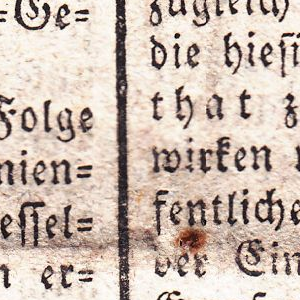 =Ge=
Folge
nien=
essel=
n er=
zugleich
die hiesi
that z
wirken
fentliche
der Ein